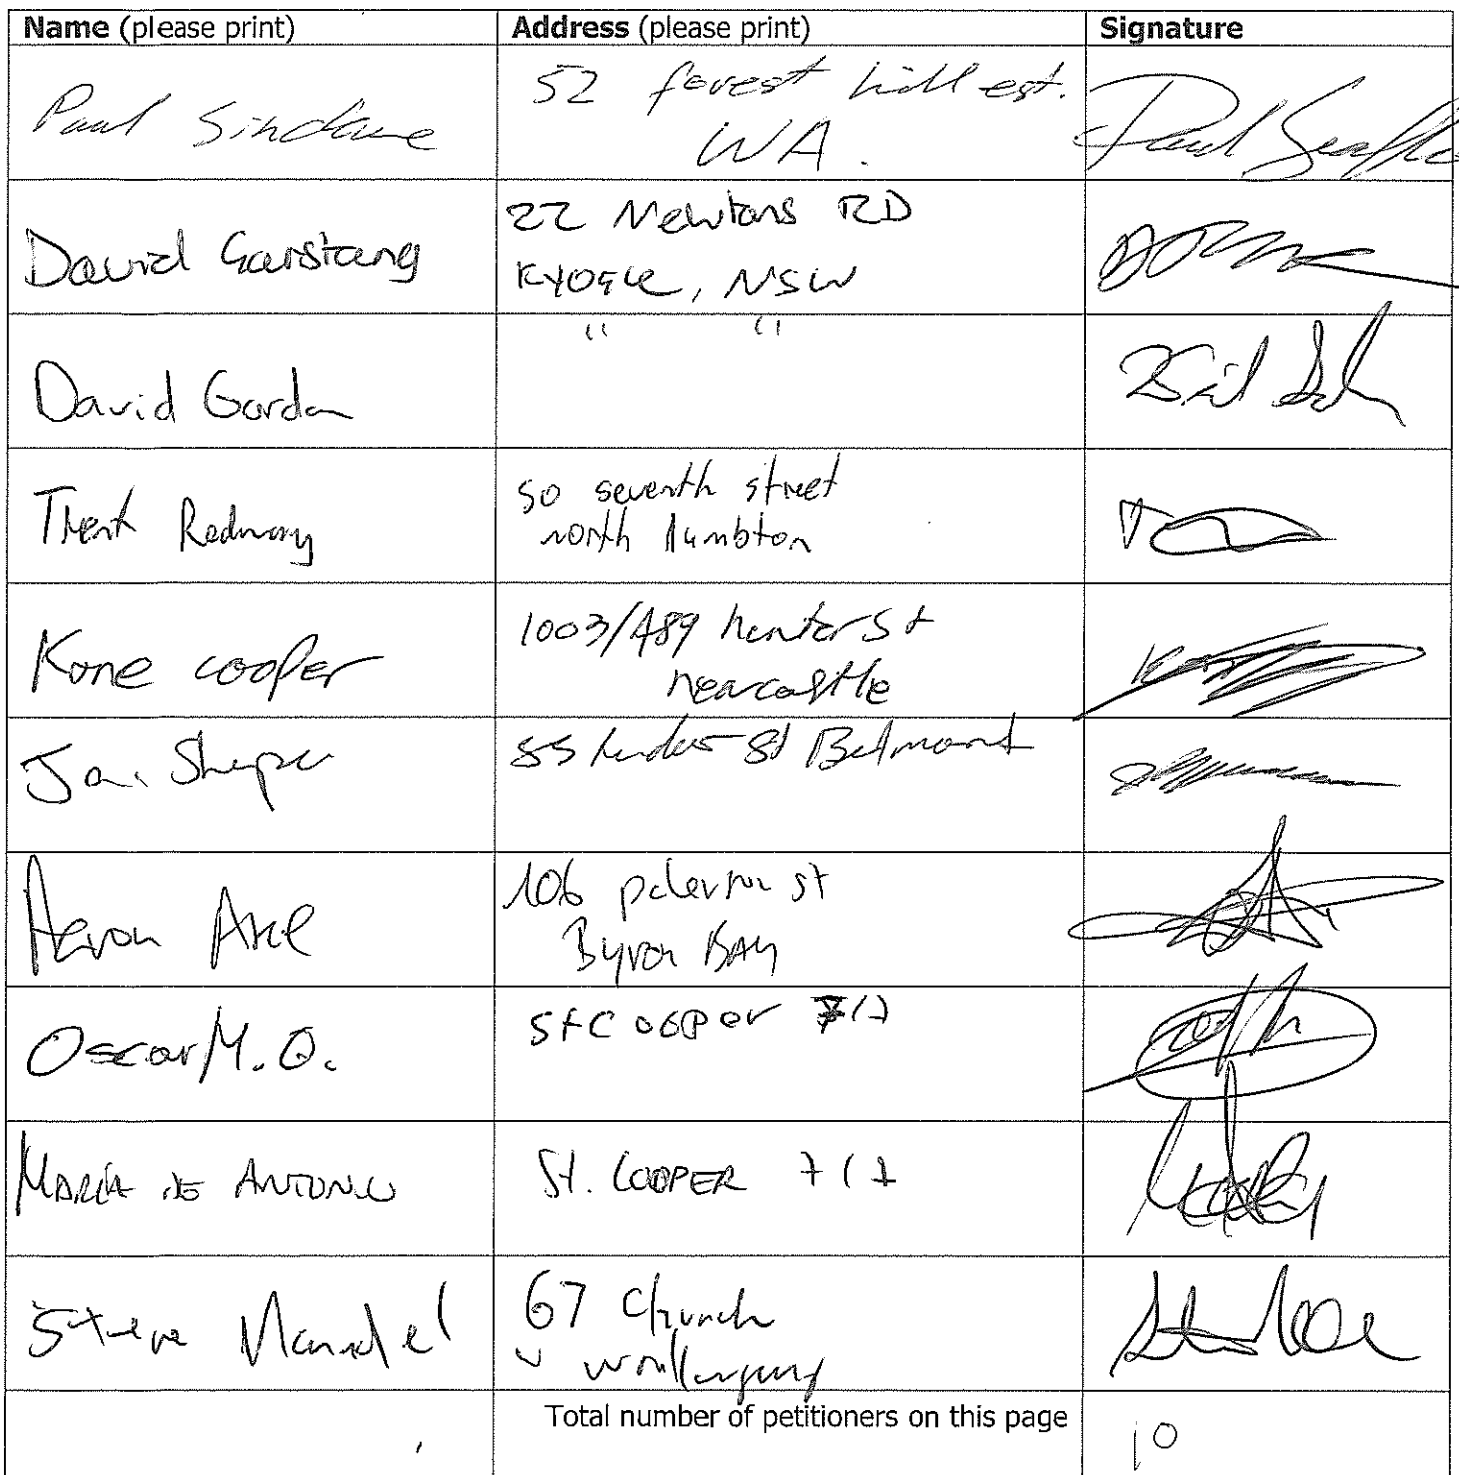 Name (please print) Address (please print) Signature
Paul Sinclare 52 forest hill est.
WA.
David Garstang 22 Newtons RD
KYOGLE, NSW
David Gordon " "
Trent Redmay 50 seventh street
north lambton
Kone cooper 1003/489 hunter St
newcastle
St Belmont
Aeron 106 st
Byron BAY
Oscar M.O. St Cooper 7/1
MARÍA DE ANTONIO St. COOPER 7/1
Steve Mandel 67 Church
wollongong
Total number of petitioners on this page 10